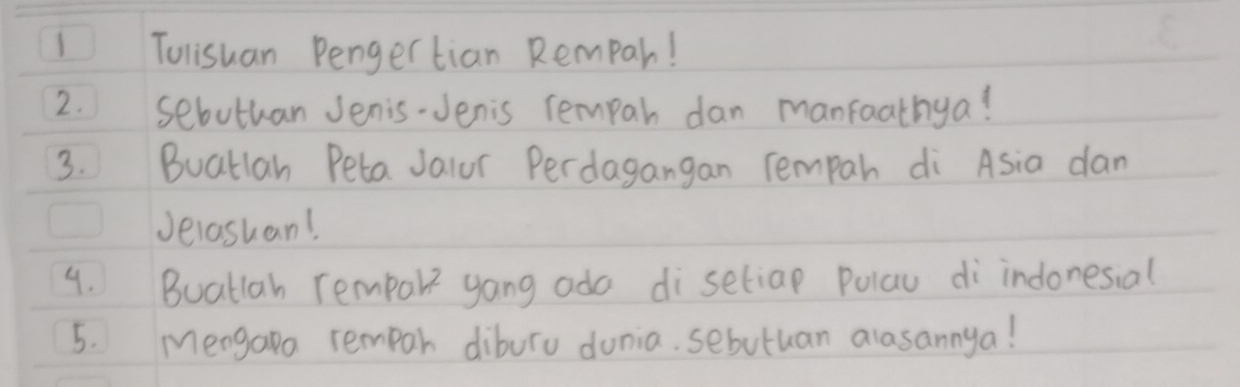 1 Tuliskan Pengertian Rempah!
2. Sebutkan Jenis-Jenis rempah dan manfaatnya!
3. Buatlah Peta Jalur Perdagangan rempah di Asia dan
Jelaskan!
4. Buatlah rempah² yang ada di setiap Pulau di indonesia!
5. Mengapa rempah diburu dunia. Sebutkan alasannya!